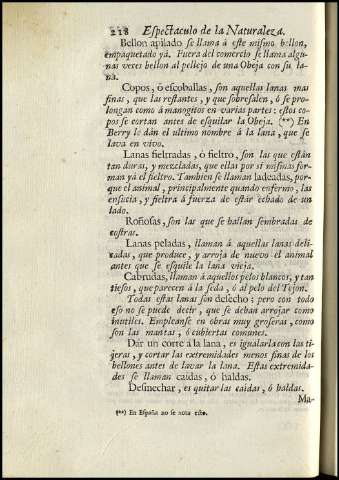 218 Espectaculo de la Naturaleza.
Bellon apilado se llama á este mismo bellon,
empaquetado yá. Fuera del comercio se llama algu-
nas veces bellon al pellejo de una Obeja con su la-
na.
Copos, ó escoballas, son aquellas lanas mas
finas, que las restantes, y que sobresalen, ó se pro-
longan como á mangoitos en varias partes: estos co-
pos se cortan antes de esquilar la Obeja. (**) En
Berry le dán el ultimo nombre á la lana, que se
lava en vivo.
Lanas fieltradas, ó fieltro, son las que están
tan duras, y mezcladas, que ellas por sí mismas for-
man yá el fieltro. Tambien se llaman ladeadas, por-
que el animal, principalmente quando enfermo, las
ensucia, y fieltra á fuerza de estár echado de un
lado.
Roñosas, son las que se hallan sembradas de
costras.
Lanas peladas, llaman á aquellas lanas deli-
cadas, que produce, y arroja de nuevo el animal
antes que se esquile la lana vieja.
Cabrudas, llaman á aquellos pelos blancos, y tan
tiesos, que parecen á la seda, ó al pelo del Tejon.
Todas estas lanas son desecho; pero con todo
eso no se puede decir, que se deban arrojar como
inutiles. Empleanse en obras muy groseras, como
son las mantas, ó cubiertas comunes.
Dár un corte á la lana, es igualarla con las ti-
jeras, y cortar las extremidades menos finas de los
bellones antes de lavar la lana. Estas extremida-
des se llaman caídas, ó haldas.
Desmechar, es quitar las caidas, ó haldas.
Ma-
(**) En España no se nota esto.